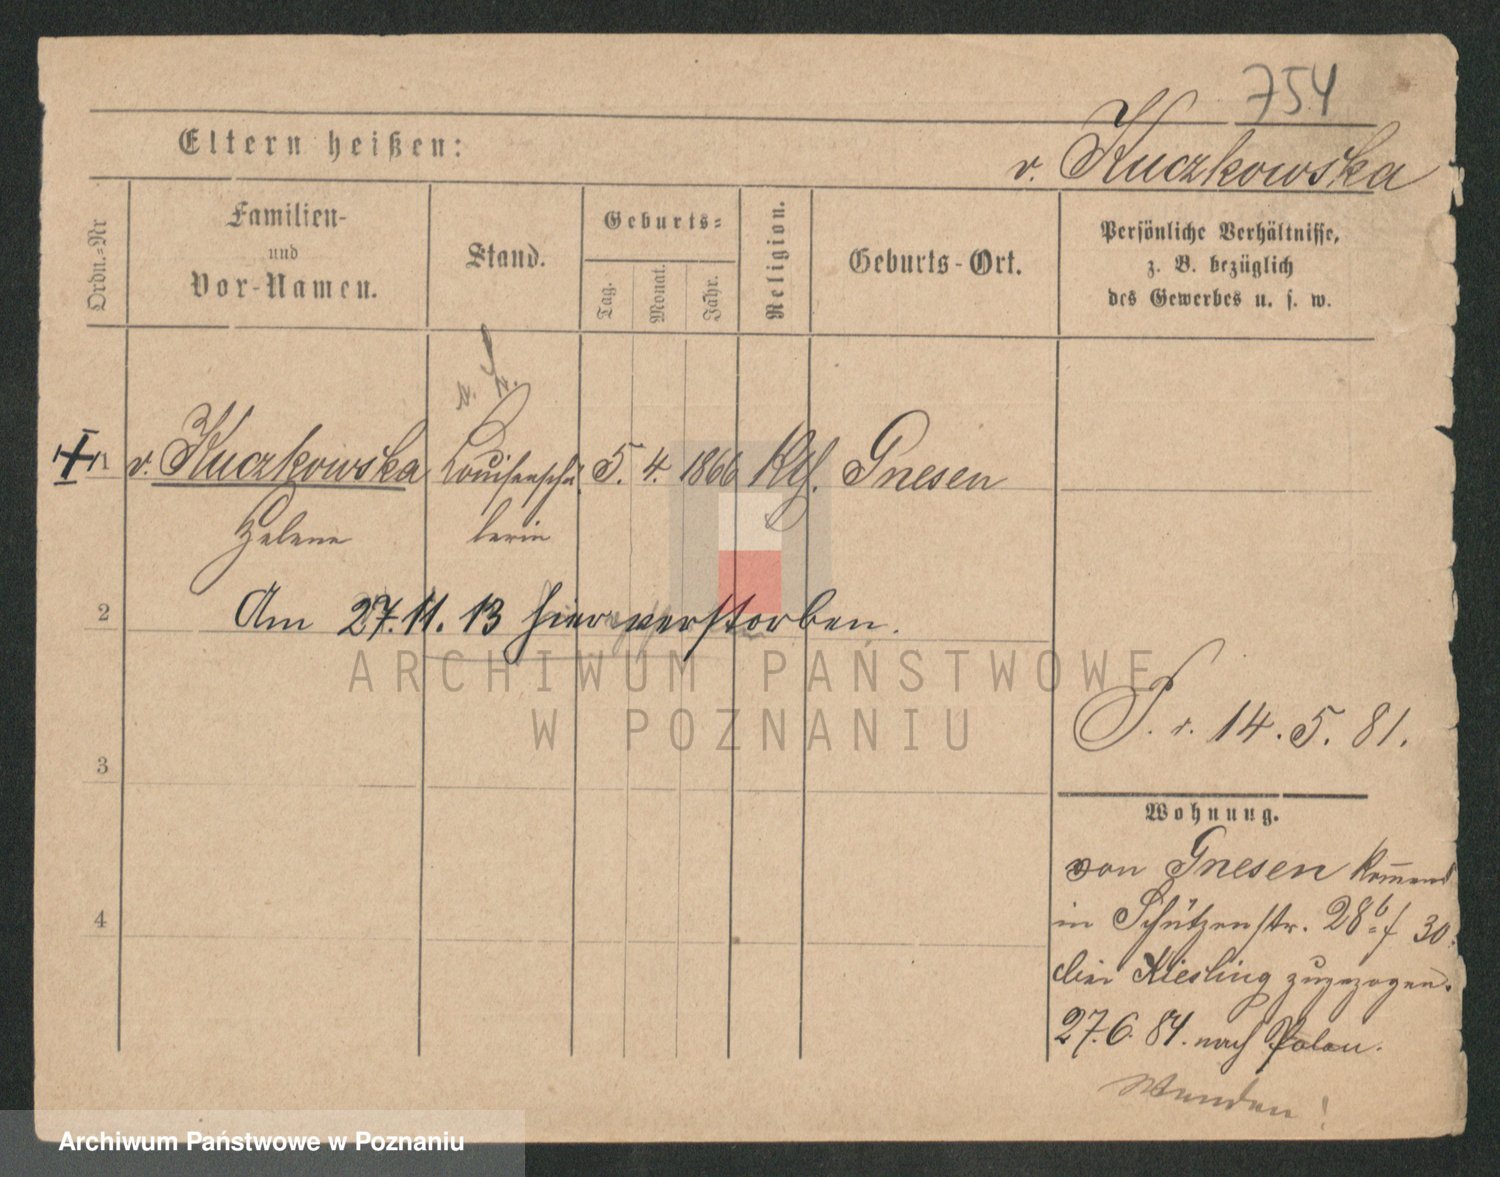 754
v. Kuczkowska
Eltern heißen:
Ordn.-Nr
Familien-
und
Vor-Namen.
Stand.
Geburts-
Tag.
Monat.
Jahr.
Religion.
Geburts-Ort.
Persönliche Verhältnisse,
z. B. bezüglich
des Gewerbes u. s. w.
1 v. Kuczkowska Louisenschü 5. 4. 1866 Kth. Gnesen
Helene lerin
2 Am 27.11.13 hier verstorben.
ARCHIWUM PAŃSTWOWE
W POZNANIU
14. 5. 81.
3
Wohnung.
von Gnesen kommend
in Schützenstr. 28b 30
bei Kiesling zugezogen.
4
27.6.84. nach Polen.
Wenden!
Archiwum Państwowe w Poznaniu